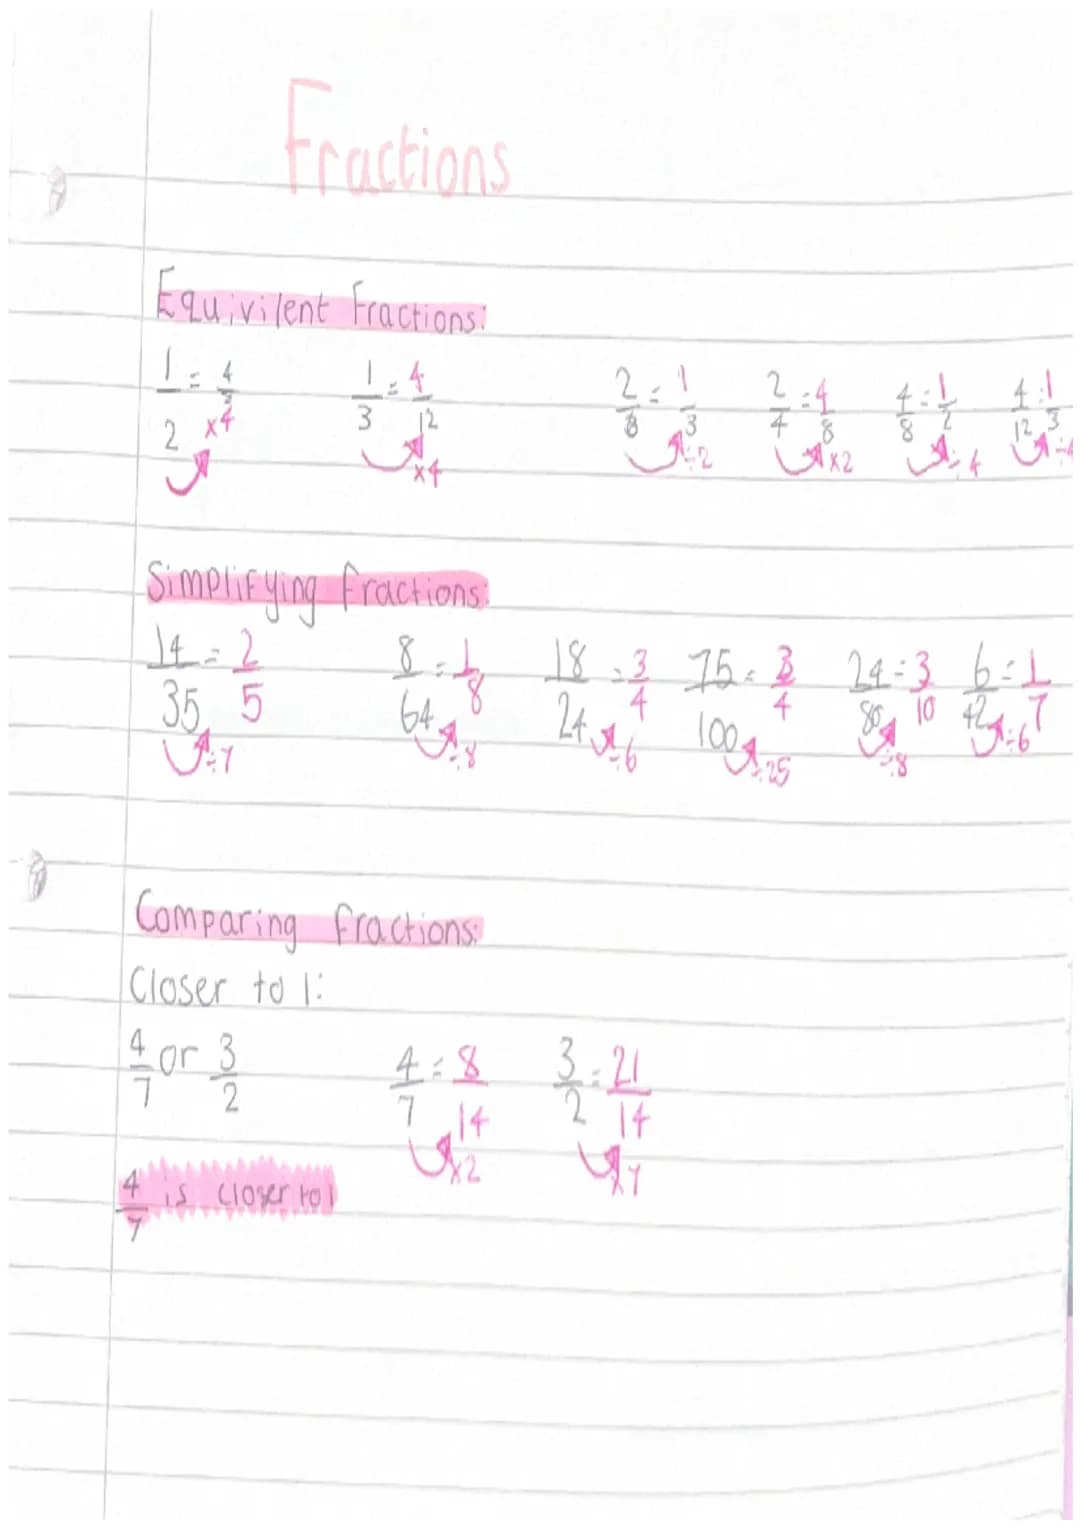 Fractions
Equivilent Fractions:
1/2 = 4/ ×4
1/3 = 4/12 ×4
2/6 = 1/3 ÷2
2/4 = 4/8 ×2
4/8 = 1/2 ÷4
4/12 = 1/3 ÷4
Simplifying fractions:
14/35 = 2/5 ÷7
8/64 = 1/8 ÷8
18/24 = 3/4 ÷6
75/100 = 3/4 ÷25
24/80 = 3/10 ÷8
6/42 = 1/7 ÷6
Comparing fractions:
Closer to 1:
4/7 or 3/2
4/7 = 8/14 ×2
3/2 = 21/14 ×7
4/7 is closer to 1